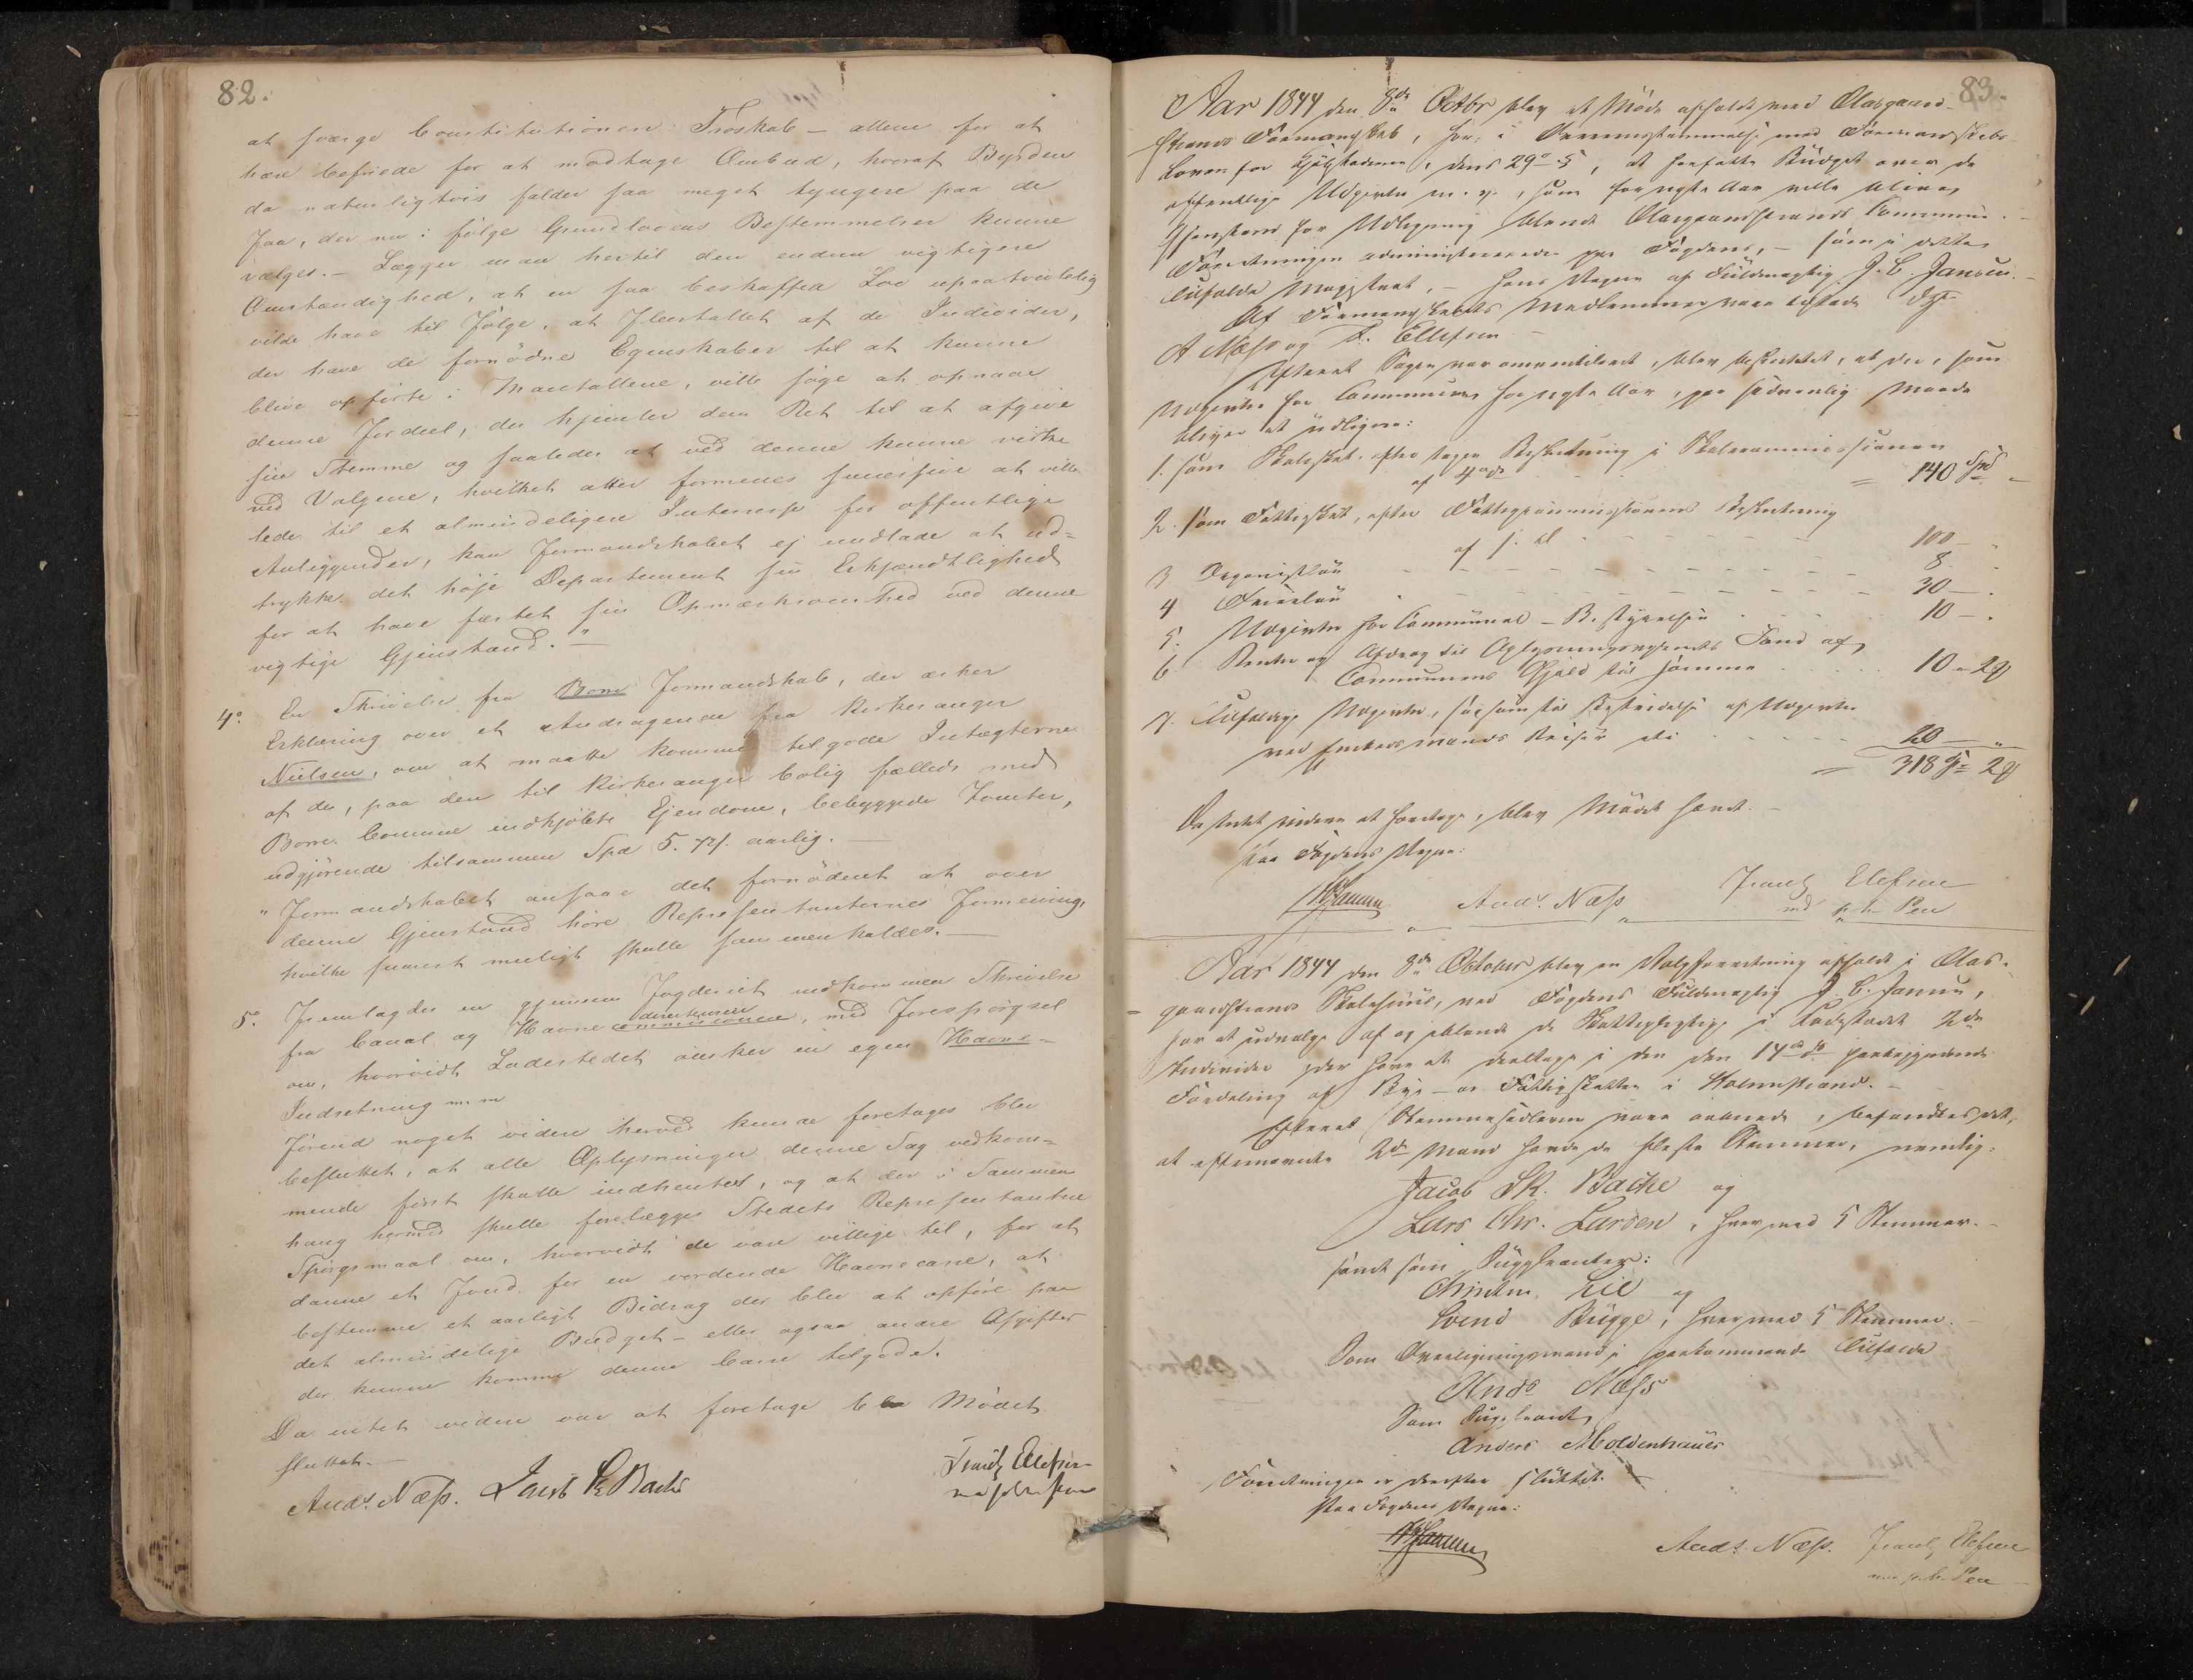 82.
at sværge Constitutionen Troskab – allene for at
være befriede for at modtage Ombud, hvoraf Byrden
da naturligtvis falder saa meget tyngere paa de
faa, der nu i følge Grundlovens Bestemmelser kunne
vælges. – Lægger man hertil den endnu vigtigere
Omstændighed, at en saa beskaffen Lov upaatvivlelig
vilde have til Følge, at Fleertallet af de Individer,
der have de fornødne Egenskaber til at kunne
blive opførte i Mantallene, ville søge at opnaae
denne Fordeel, der hjemler dem Ret til at afgive
sin Stemme og saaledes at ved denne kunne virke
ved Valgene, hvilket atter formenes succesive at ville
lede til et almindeligere Interesse for offentlige
Anliggender, kan Formandskabet ej undlade at ud=
trykke det høje Departement sin Erkjendtlighed
for at have fæstet sin Opmærksomhed ved denne
vigtige Gjenstand." –
4º. En Skrivelse fra Borre Formandskab, der æsker
Erklæring over et Andragende fra Kirkesanger
Nielsen, om at maatte komme tilgode Indtægterne
af de, paa den til Kirkesanger bolig fælleds med
Borre Commune indkjøbte Ejendom, bebyggede Tomter,
udgjørende tilsammen Spd 5. 72 s. aarlig. –
"Formandskabet ansaae det fornødent at over
denne Gjenstand høre Repræsentanternes Formening,
hvilke snarest mueligt skulle sammenkaldes. –
5º. Fremlagdes en gjennem Fogderiet indkommen Skrivelse
directeuren
fra Canal og Havne commissionen, med Forespørgsel
om, hvorvidt Ladestedet ønsker en egen Havne-
Indretning m. m
Førend noget videre herved kunde foretages blev
besluttet, at alle Oplysninger denne Sag vedkom=
mende først skulle indhentes, og at der i Sammen
hæng hermed skulle forelægges Stedets Repræsentantere
Spørgsmaal om, hvorvidt de vare villige til, for at
danne et Fond for en vordende Havnecasse, at
bestemme et aarligt Bidrag der blev at opføre paa
det almindelige Budget – eller ogsaa andre Afgifter
der kunne komme denne Casse tilgode.
Da intet videre var at foretage blev Mødet
sluttet. –
Ands. Næss. Jacob Sk Backe
Frantz Ellefsen
83.
Aar 1844 den 8de Octbr blev et Møde afholdt med Aasgaard-
strands Formandskab, for, i Overensstemmelse med Formandskabs-
Loven for Kjøbstæderne, dens 29º §, at forfatte Budget over de
offentlige Udgivter m. v., som for næste Aar ville blive
Gjenstand for Udligning blandt Aasgaardstrands Commune. –
Forretningen administreredes paa Fogdens, – som i dette
Tilfælde Magistrat, – hans Vegne af Fuldmægtig J. C. Jansen. –
Af Formandskabets Medlemmer vare tilstede Hr.
A Næss og F. Ellefsen –
Efterat Sagen var omventileret, blev besluttet, at der, som
Udgivter for Communen for næste Aar, paa sædvanlig Maade
bliver at udligne:
1. som Skoleskat, efter tagen Beslutning i Skolecommissionen
af 4de . . . = 140 Spd –
2. som Fattigskat, efter Fattigcommissionens Beslutning
af s. d. . . . 100 –
3 Organistløn . . . 8 – .
4 . . . 30 – .
5. Udgivter for Communal-Bestyrelsen . . . 10 – .
6. Renter og Afdrag til Oplysningsvæsenets Fond af
Communens Gjæld til samme . . . 10 „ 28
7. Tilfældige Udgivter, saasom til Bestridelse af Udgivter
ved Embedsmænds Reiser etc . . . 20 – „
= 318 Spd 28
Da Intet videre at foretage, blev Mødet hævet. –
Paa Fogdens Vegne:
JCJansen Ands. Næss Frantz Elefsen
med p. h. Pen
Aar 1844 den 8de October blev en Valgforretning afholdt i Aas-
gaardstrands Skolehuus, ved Fogdens Fuldmægtig J. C. Jansen,
for at udvælge af og iblandt de Skattepligtige i Ladestedet 2de
Individer der have at deeltage i den den 14de ds. foregaaende
Fordeling af Bye- og Fattigskatten i Holmestrand. –
Efterat Stemmesedlerne vare aabnede, befandtes det,
at efternævnte 2de Mænd havde de fleste Stemmer, nemlig:
Jacob Sk. Backe og
Lars Chr. Larsen, hver med 5 Stemmer. –
samt som Suppleanter:
Lie og
Svend Bugge, hver med 5 Stemmer. –
Som Overligningsmand i forekommende Tilfælde
Ands Næss
Som Suppleant
Anders Moldenhauer
Forretningen er derefter sluttet. –
Paa Fogdens Vegne:
JCJansen
Ands. Næss. Frantz Elefsen
med p. h. Pen